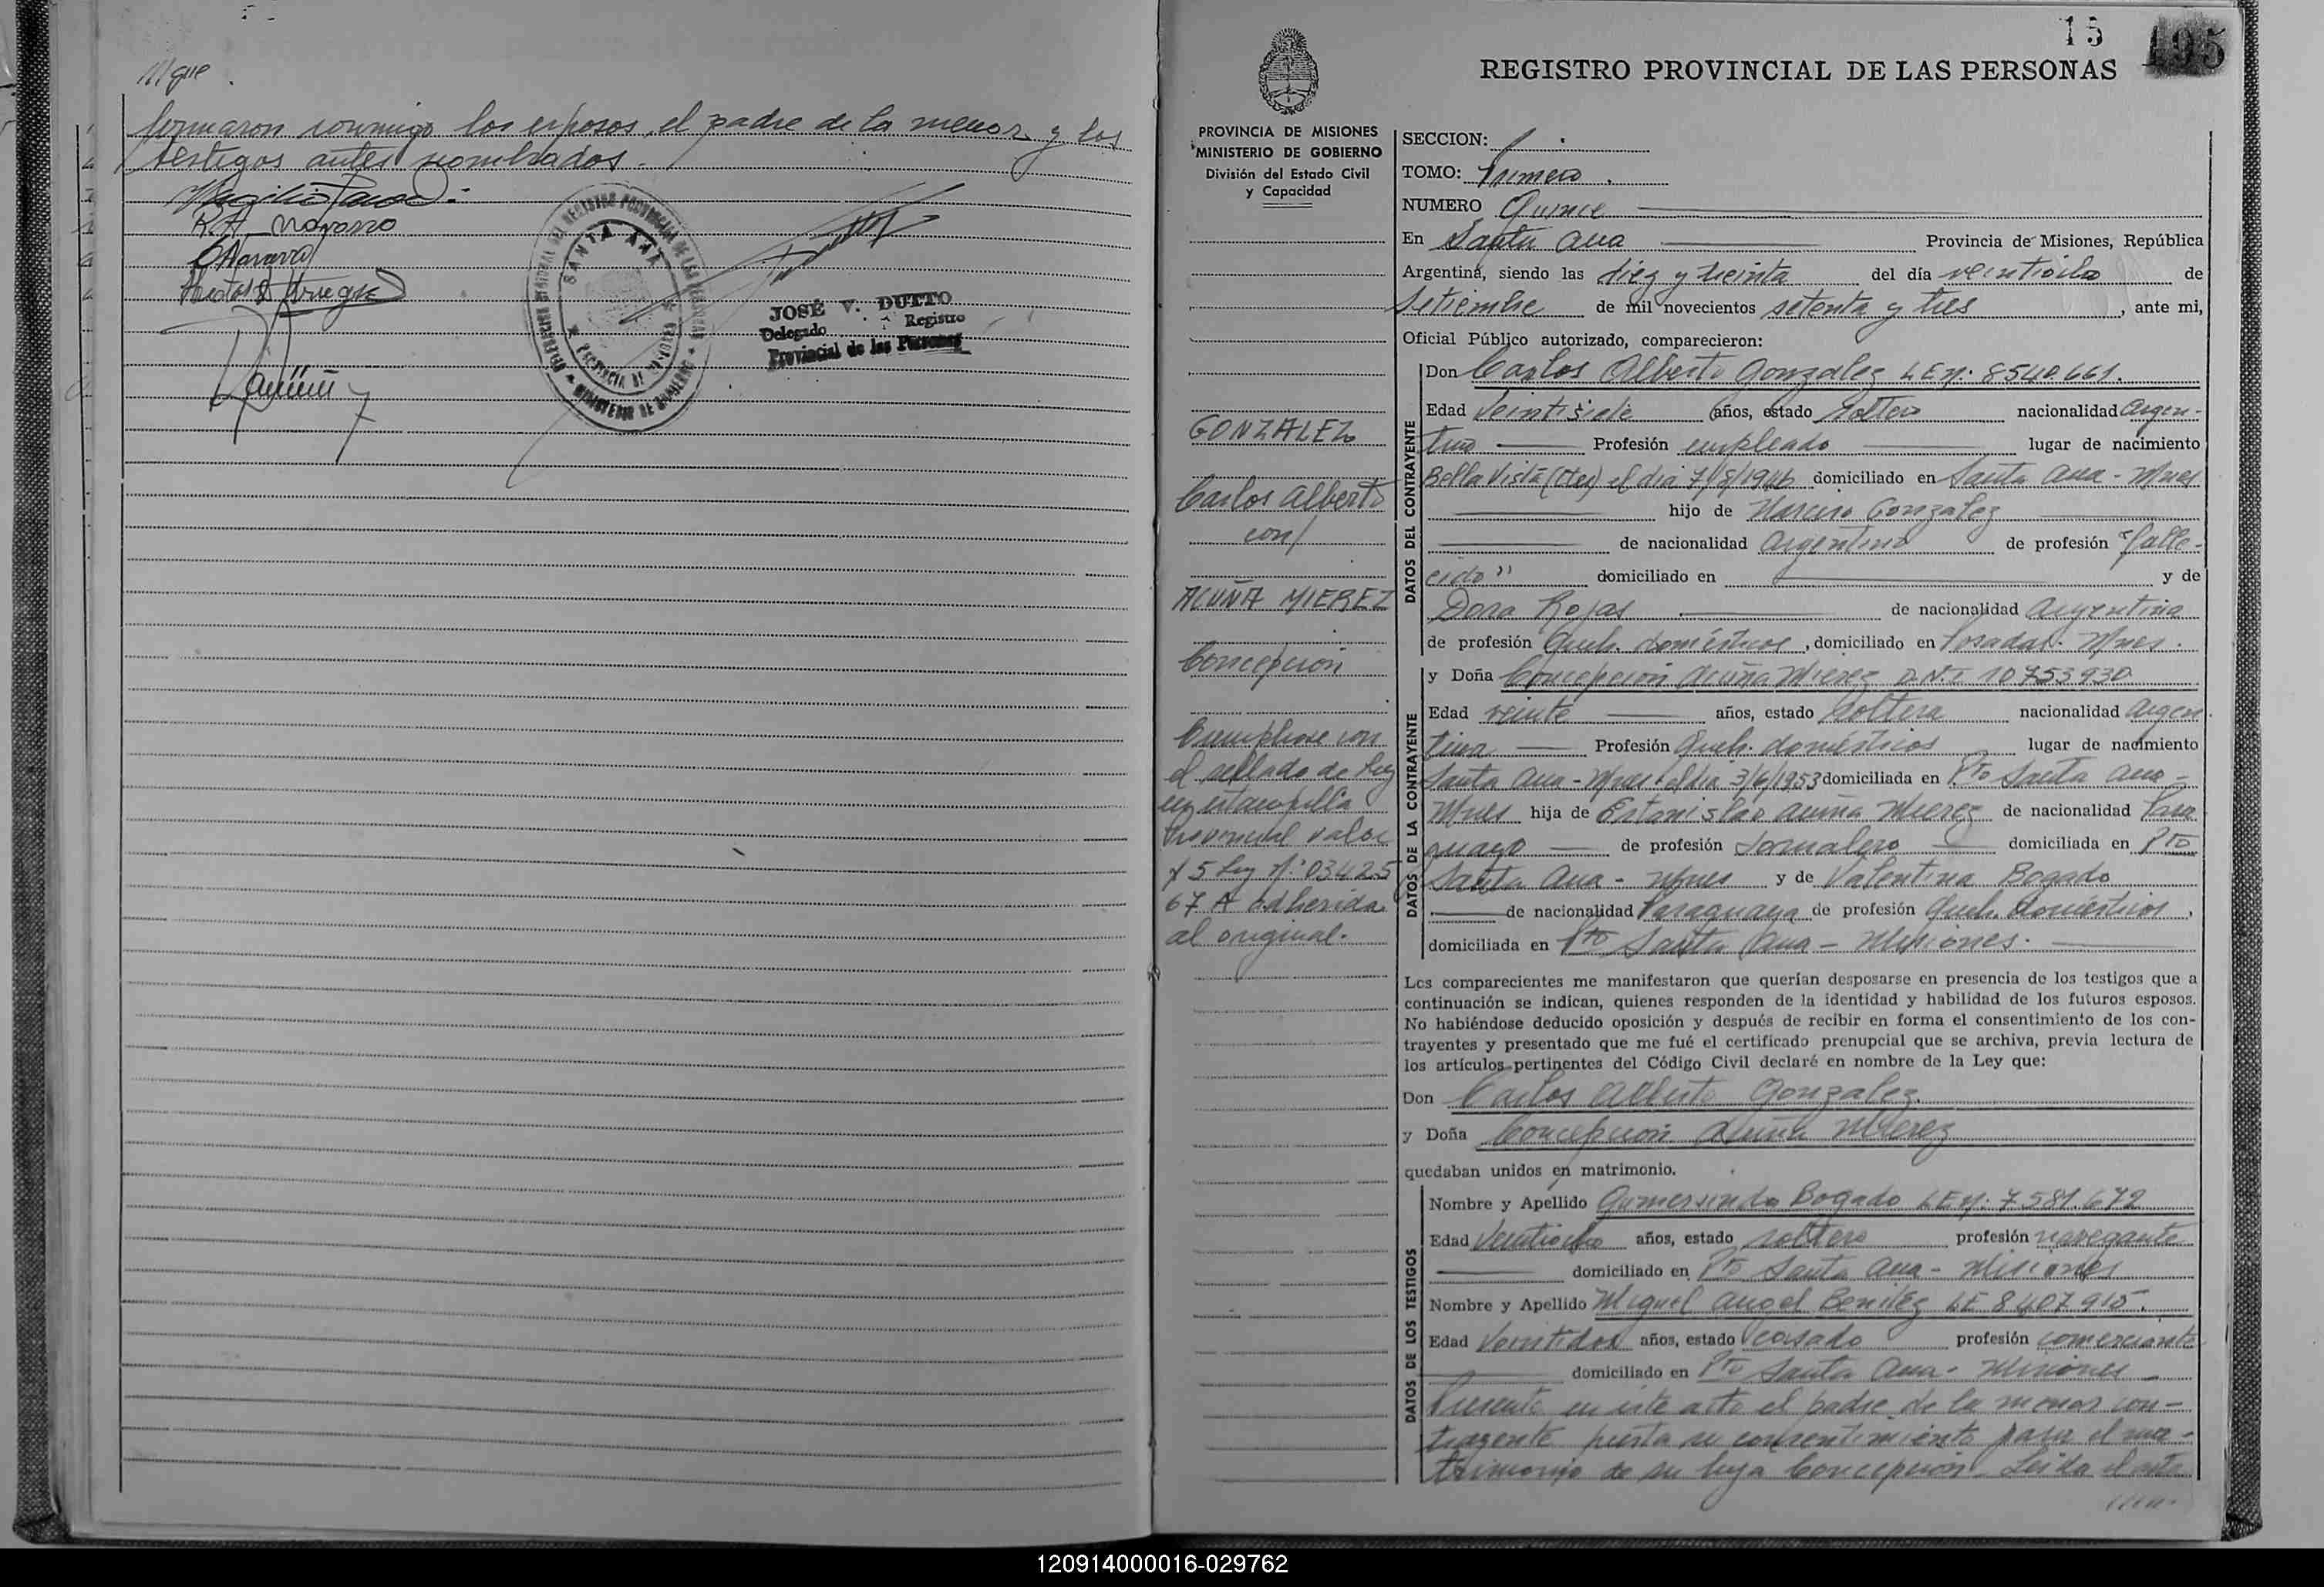 firmaron conmigo los esposos, el padre de la menor y los
testigos antes nombrados.
R.A. Navarro
SANTA ANA
JOSÉ V. DUTTO
Delegado Registro
Provincial de las Personas
15
195
REGISTRO PROVINCIAL DE LAS PERSONAS
PROVINCIA DE MISIONES
MINISTERIO DE GOBIERNO
División del Estado Civil
y Capacidad
GONZALEZ
Carlos Alberto
con/
ACUÑA MIEREZ
Concepción
Cumpliose con
el sellado de ley
en estampilla
Provincial valor
$ 5 Ley Nº 03425
67 A adherida
al original.
SECCION:
TOMO: Primero.
NUMERO Quince
En Santa Ana Provincia de Misiones, República
Argentina, siendo las diez y treinta del día veintiocho de
Setiembre de mil novecientos setenta y tres, ante mi,
Oficial Público autorizado, comparecieron:
DATOS DEL CONTRAYENTE
Don Carlos Alberto Gonzalez L E Nº: 8540.661.
Edad Veintisiete años, estado soltero nacionalidad Argen-
tino Profesión empleado lugar de nacimiento
Bella Vista (Ctes) el día 7/8/1946 domiciliado en Santa Ana - Mnes
hijo de Narciso Gonzalez
de nacionalidad Argentino de profesión "falle-
cido" domiciliado en y de
Dora Rojas de nacionalidad Argentina
de profesión Queh. domésticos, domiciliado en Posadas. Mnes.
DATOS DE LA CONTRAYENTE
y Doña Concepción Acuña Mierez D.N.I 10753930
Edad veinte años, estado Soltera nacionalidad Argen
tina Profesión Queh. domésticos lugar de nacimiento
Santa Ana - Mnes. el día 3/6/1953 domiciliada en Pto Santa Ana -
Mnes hija de Estanislao Acuña Mierez de nacionalidad Para
guayo de profesión Jornalero domiciliada en Pto
Santa Ana - Mnes y de Valentina Bogado
de nacionalidad Paraguaya de profesión Queh. domésticos,
domiciliada en Pto Santa Ana - Misiones.
Los comparecientes me manifestaron que querían desposarse en presencia de los testigos que a
continuación se indican, quienes responden de la identidad y habilidad de los futuros esposos.
No habiéndose deducido oposición y después de recibir en forma el consentimiento de los con-
trayentes y presentado que me fué el certificado prenupcial que se archiva, previa lectura de
los artículos pertinentes del Código Civil declaré en nombre de la Ley que:
Don Carlos Alberto Gonzalez.
y Doña Concepción Acuña Mierez
quedaban unidos en matrimonio.
DATOS DE LOS TESTIGOS
Nombre y Apellido Gumersindo Bogado L E Nº: 7.581.672
Edad Veintiocho años, estado soltero profesión navegante
domiciliado en Pto Santa Ana - Misiones
Nombre y Apellido Miguel Angel Benitez LE 8407915.
Edad Veintidos años, estado casado profesión comerciante
domiciliado en Pto Santa Ana - Misiones
Presente en este acto el padre de la menor con-
trayente presta su consentimiento para el ma-
trimonio de su hija Concepción. Leída el acta
120914000016-029762